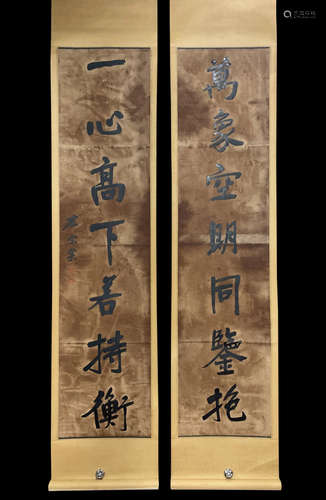 萬象空明同鑒抱
一心高下善持衡